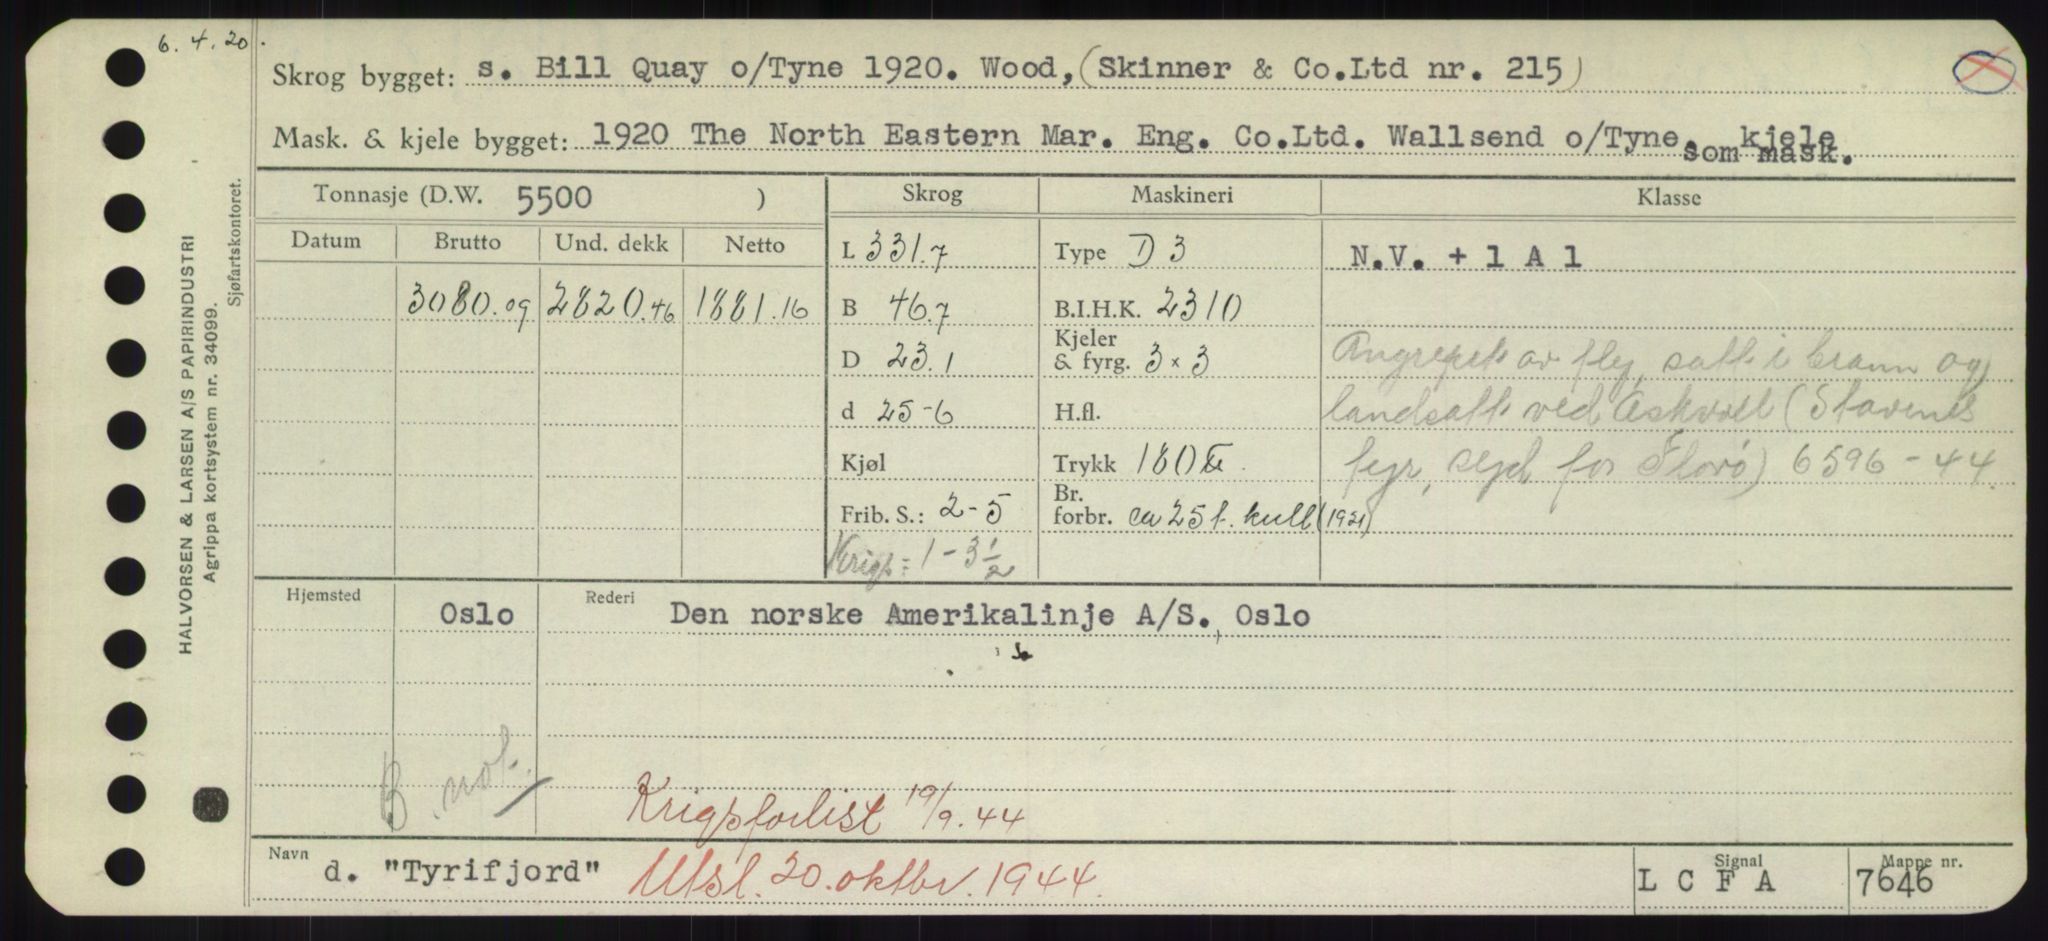 6.4.20.
Skrog bygget: s. Bill Quay o/Tyne 1920. Wood, (Skinner & Co.Ltd nr. 215)
Mask. & kjele bygget: 1920 The North Eastern Mar. Eng. Co.Ltd. Wallsend o/Tyne. kjele
som mask.
HALVORSEN & LARSEN A/S PAPIRINDUSTRI
Agrippa kortsystem nr. 34099.
Sjøfartskontoret.
Tonnasje (D.W. 5500 )
Skrog Maskineri Klasse
Datum Brutto Und. dekk Netto
3080.09 2820.46 1881.16
L 331.7
B 46.7
D 23.1
d 25-6
Kjøl
Frib. S.: 2-5
Krigs = 1 - 3 1/2
Type D 3
B.I.H.K. 2310
Kjeler
& fyrg. 3 x 3
H.fl.
Trykk 180 ℔.
Br.
forbr. ca 25 t. kull (1921)
N.V. + 1 A 1
Angrepet av fly, satt i brann og
landsatt ved Askvoll (Stavenes
fyr, syd for Florø) 6596-44.
Hjemsted Oslo
Rederi Den norske Amerikalinje A/S., Oslo
B. not.
Krigsforlist 19/9.44
Navn d. "Tyrifjord" Utsl. 20. oktbr. 1944.
Signal L C F A
Mappe nr. 7646